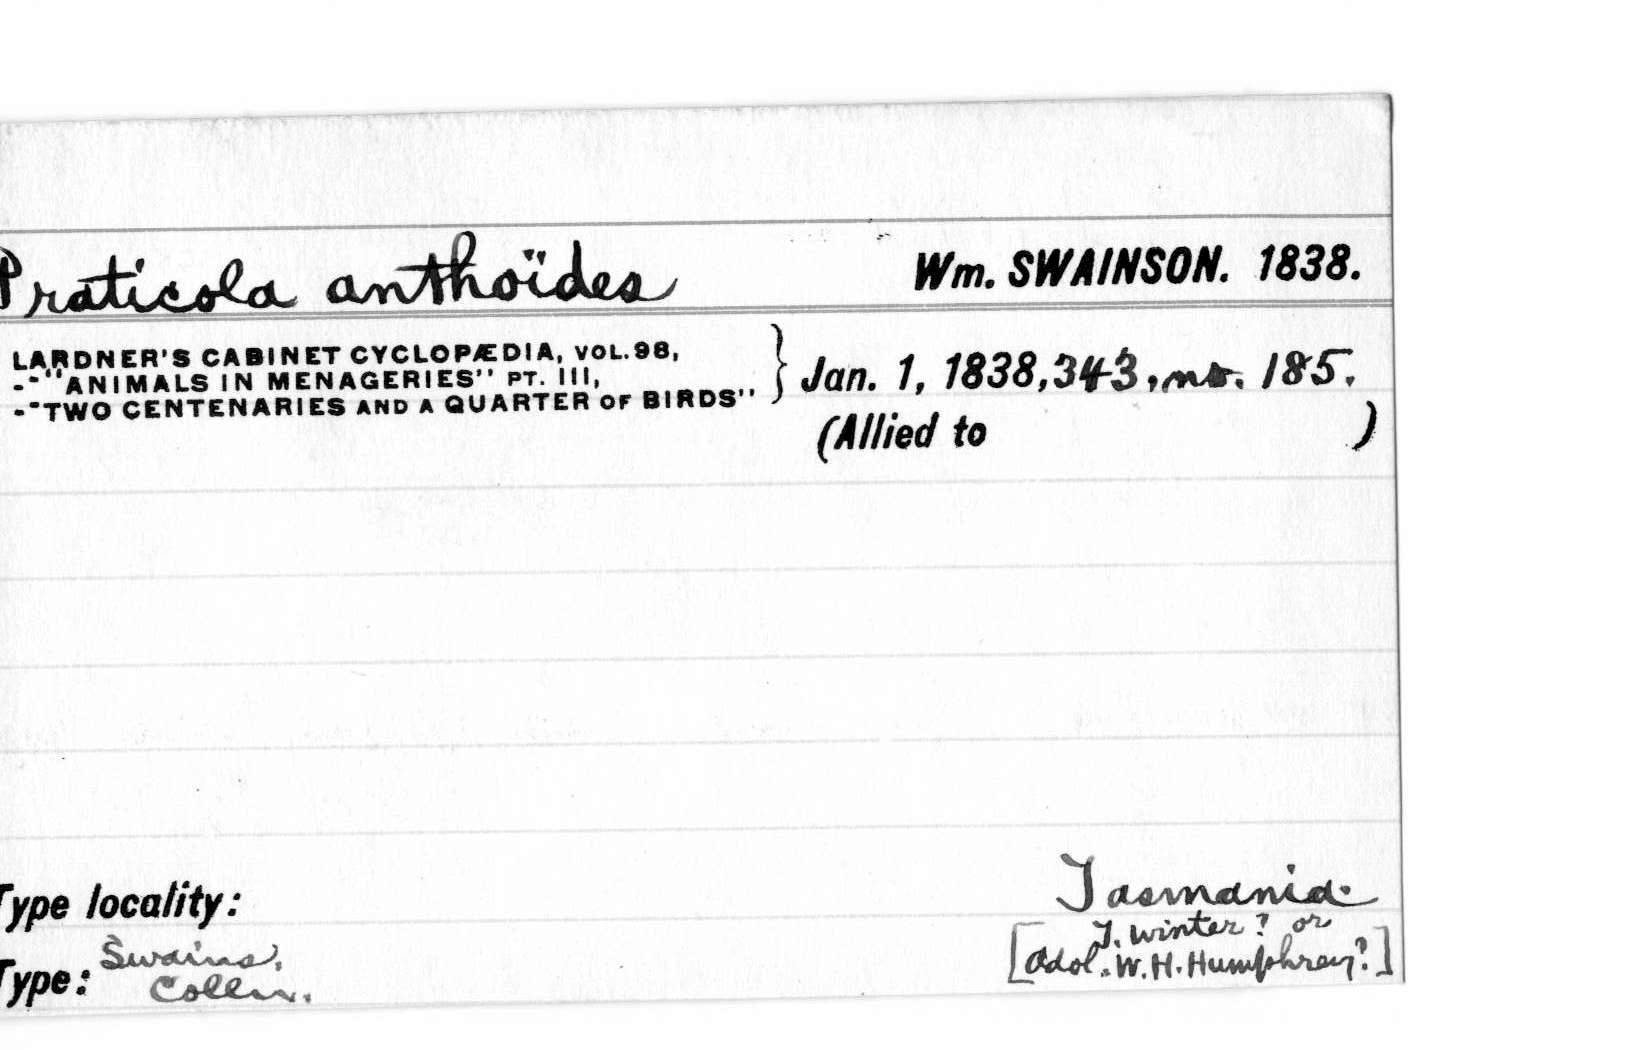 Praticola anthoïdes Wm. SWAINSON. 1838.
LARDNER'S CABINET CYCLOPÆDIA, VOL.98,
--"ANIMALS IN MENAGERIES" PT. III,
--"TWO CENTENARIES AND A QUARTER OF BIRDS",
} Jan. 1, 1838, 343, no. 185.
(Allied to )
Type locality: Tasmania.
Type: Swains. Colln. [T. Winter? or
Adol. W. H. Humphrey?]